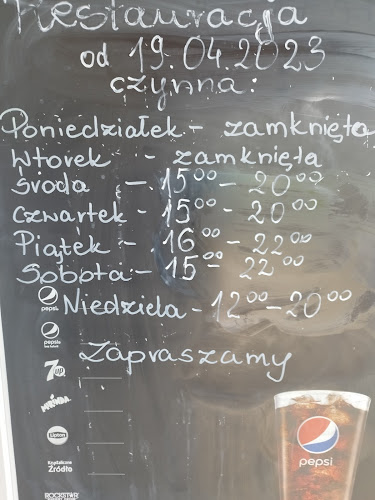 Restauracja
od 19.04.2023
czynna:
Poniedziałek - zamknięta
Wtorek - zamknięta
Środa - 15⁰⁰ - 20⁰⁰
Czwartek - 15⁰⁰ - 20⁰⁰
Piątek - 16⁰⁰ - 22⁰⁰
Sobota - 15⁰⁰ - 22⁰⁰
Niedziela - 12⁰⁰ - 20⁰⁰
Zapraszamy
pepsi
pepsi
7up
Mirinda
Lipton
Krystaliczne
Źródło
ROCKSTAR
pepsi